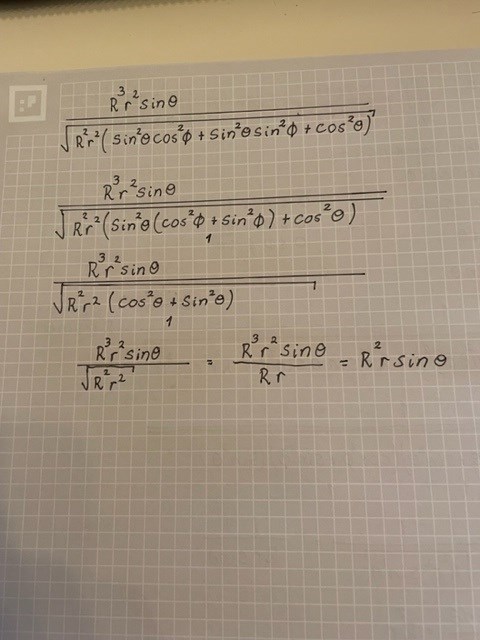 R³r²sinθ
√R²r²(sin²θcos²ϕ + sin²θsin²ϕ + cos²θ)
R³r²sinθ
√R²r²(sin²θ(cos²ϕ + sin²ϕ) + cos²θ)
1
R³r²sinθ
√R²r²(cos²θ + sin²θ)
1
R³r²sinθ / √R²r² = R³r²sinθ / Rr = R²rsinθ